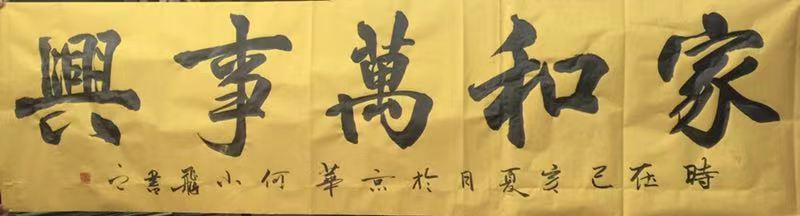 家和萬事興
時在己亥夏月於京華何小飛書之